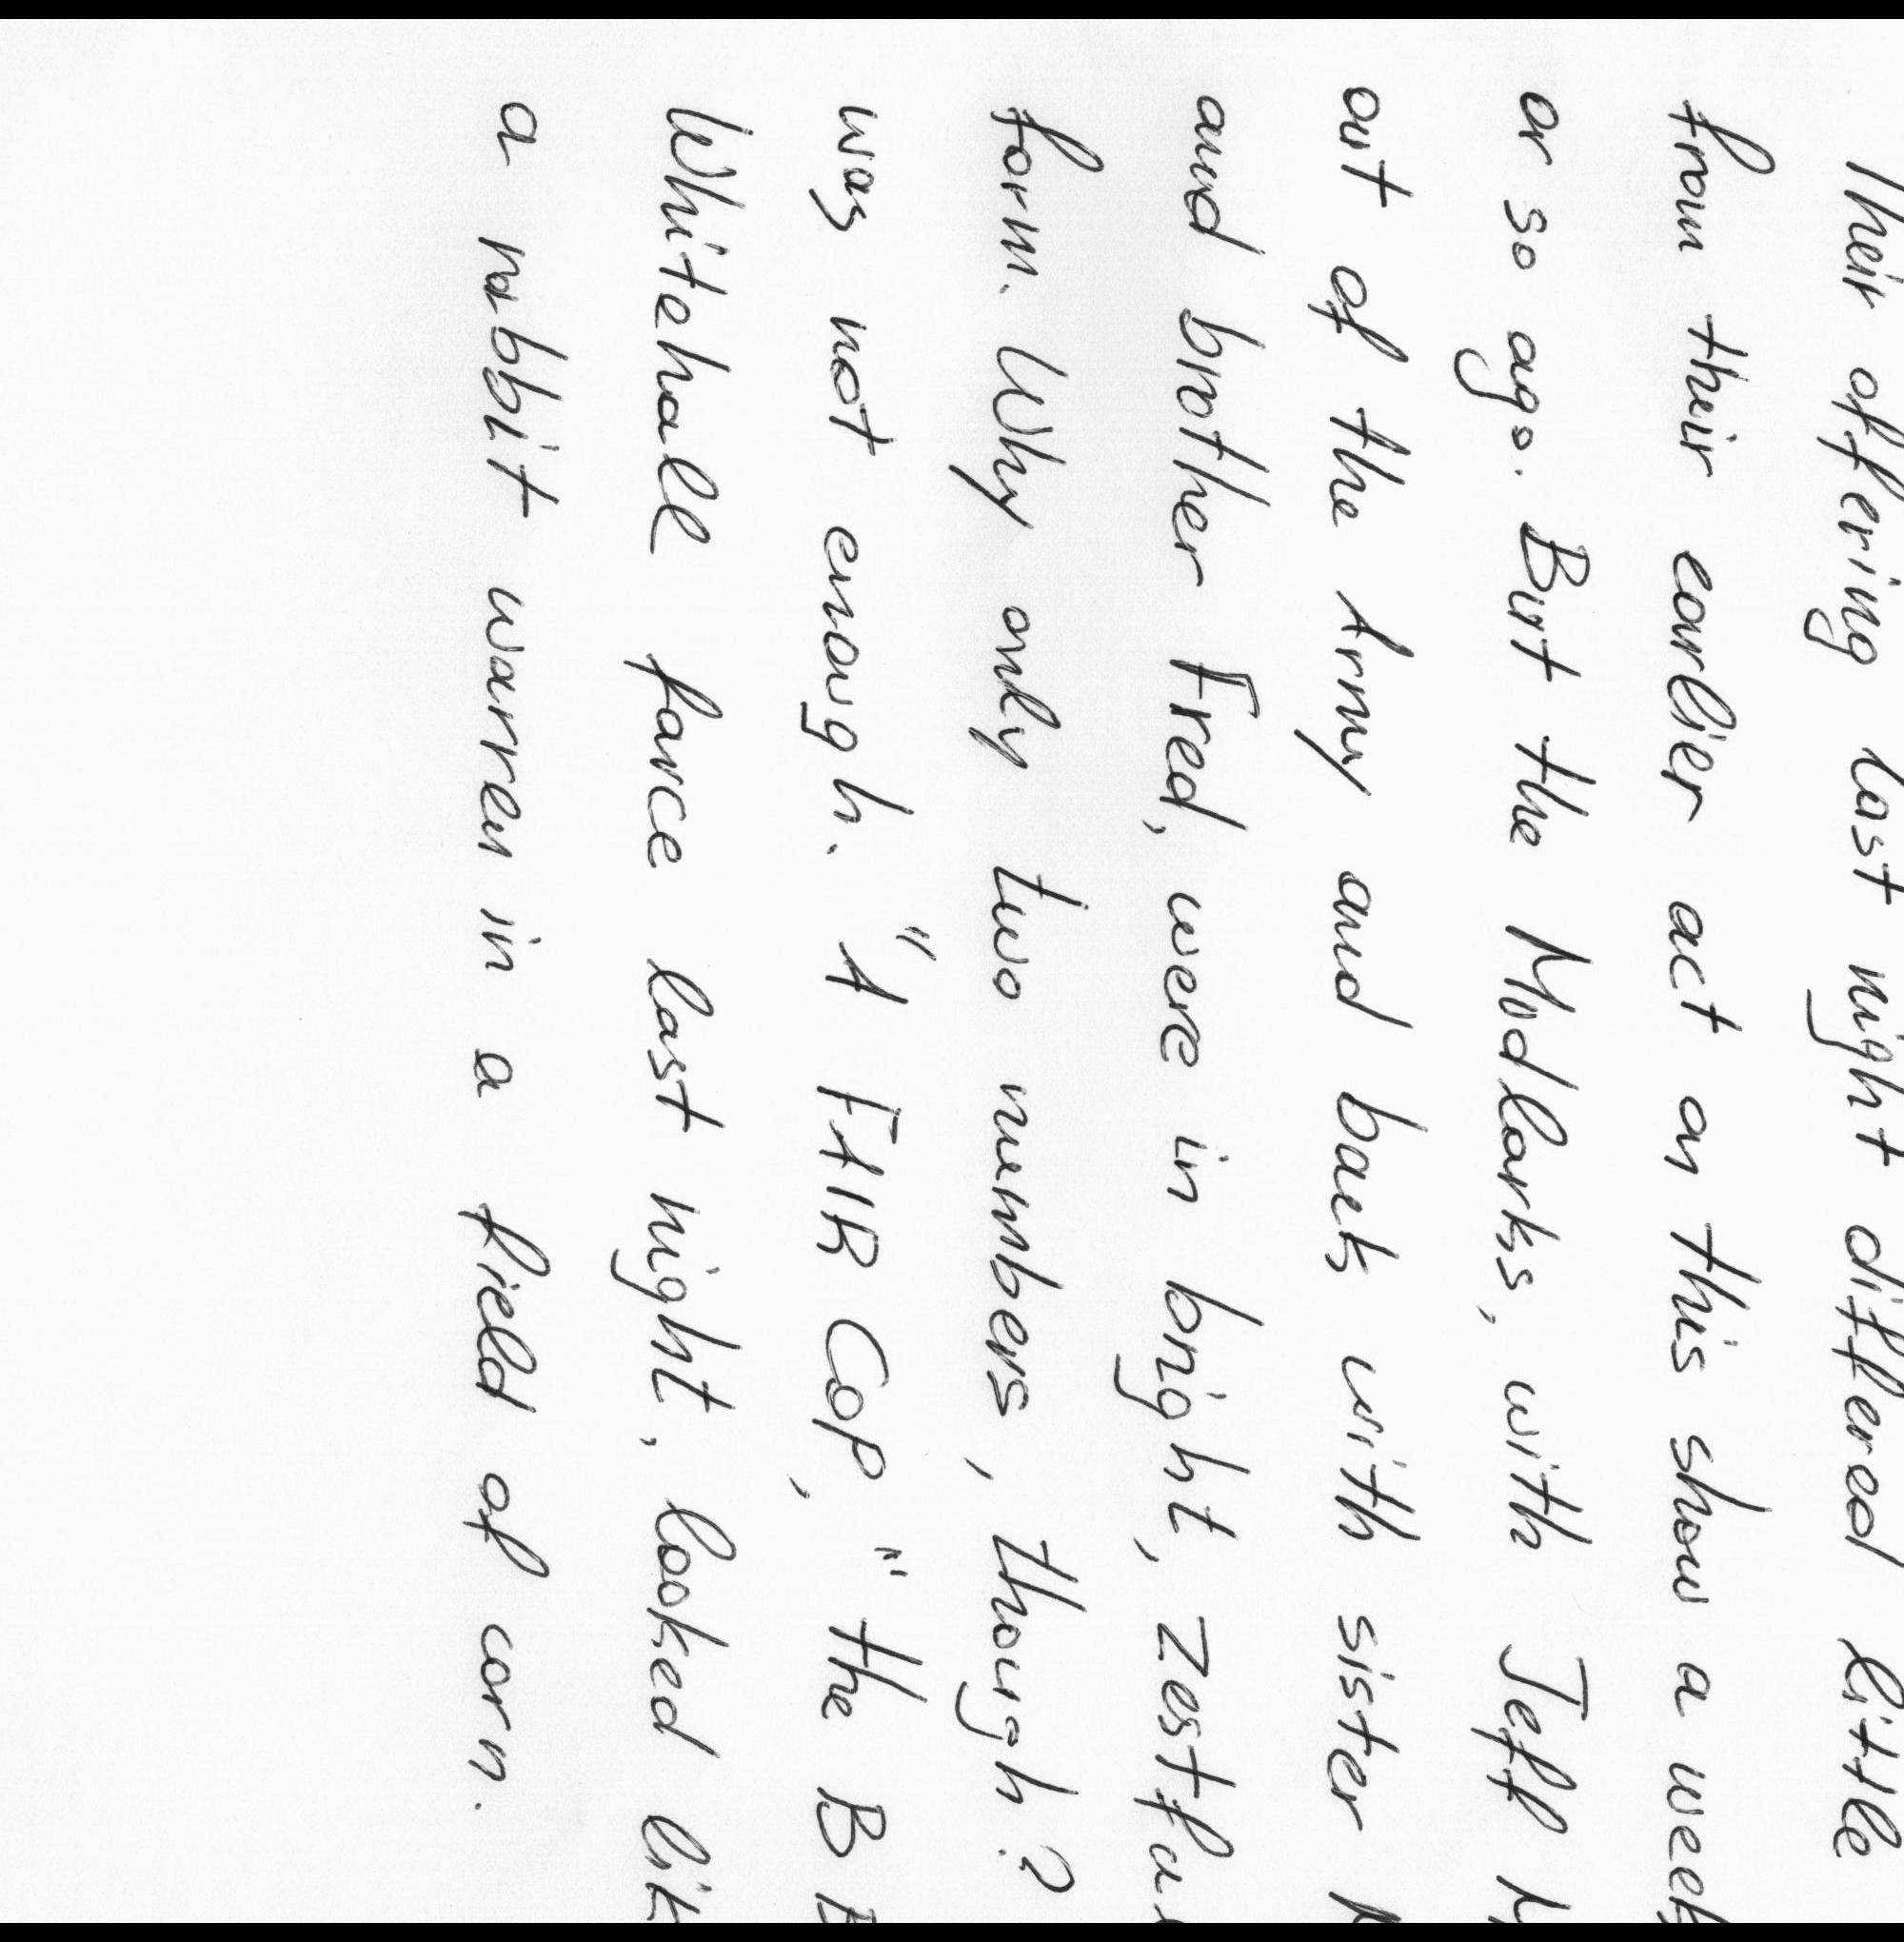 Their offering last night differed little
from their earlier act on this show a week
or so ago. But the Mudlarks, with Jeff
out of the Army and back with sister
and brother Fred, were in bright, zestful
form. Why only two numbers, though?
was not enough. "A FAIR COP," the B
Whitehall farce last night, looked lik
a rabbit warren in a field of corn.